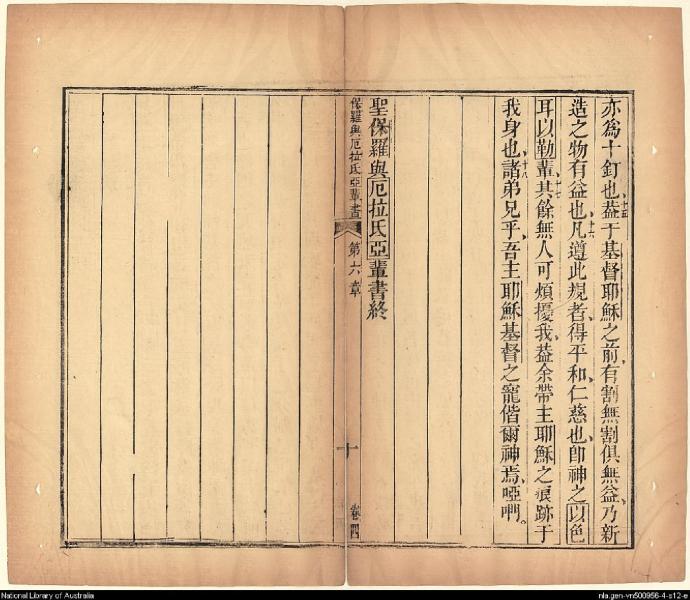 亦爲十釘也、十五葢于基督耶穌之前、有割無割俱無益、乃新
造之物有益也、十六凡遵此規者、得平和、仁慈也、卽神之以色
耳以勒輩、十七其餘無人可煩擾我、葢余帶主耶穌之痕跡于
我身也、十八諸弟兄乎、吾主耶穌基督之寵偕爾神焉、啞們。
聖保羅與厄拉氏亞輩書終
保羅與厄拉氏亞輩書 第六章 十
National Library of Australia
nla.gen-vn500956-4-s12-e